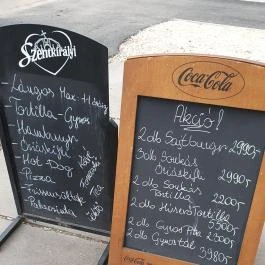 Szentkirályi
- Lángos
- Tortilla - Gyros
- Hamburger
- Óriáskifli
- Hot Dog
- Pizza
Kávé
Tea
Coca-Cola
Akció!
2 db Sajtburger 2990,-
3 db Sonkás
Óriáskifli 2990,-
2 db Sonkás
Tortilla 2200
2 db Húsos Tortilla
2 db Gyros Pita 2300
2 db Gyrostál
3980,-
Coca-Cola